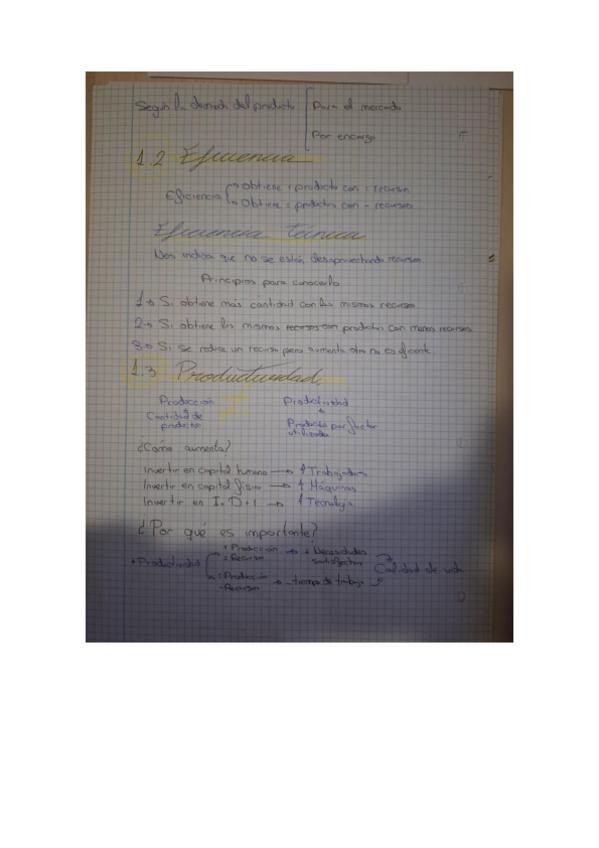 Según la demanda del producto
Para el mercado
Por encargo
1.2 Eficiencia
Eficiencia
Obtiene + producto con = recursos
Obtiene = productos con - recursos
Eficiencia técnica
Nos indica que no se están desaprovechando recursos
Principios para conocerla
1→ Si obtiene más cantidad con los mismos recursos
2→ Si obtiene los mismos productos con menos recursos
3→ Si se reduce un recurso pero aumenta otro no es eficiente
1.3 Productividad
Producción ≠ Productividad
Cantidad de producto
Producto por factor utilizado
¿Cómo aumenta?
Invertir en capital humano → ↑ Trabajadores
Invertir en capital físico → ↑ Máquinas
Invertir en I+D+i → ↑ Tecnología
¿Por qué es importante?
+ Productividad
+ Producción = Recursos → + Necesidades satisfechas
= Producción - Recursos → - tiempo de trabajo
Calidad de vida